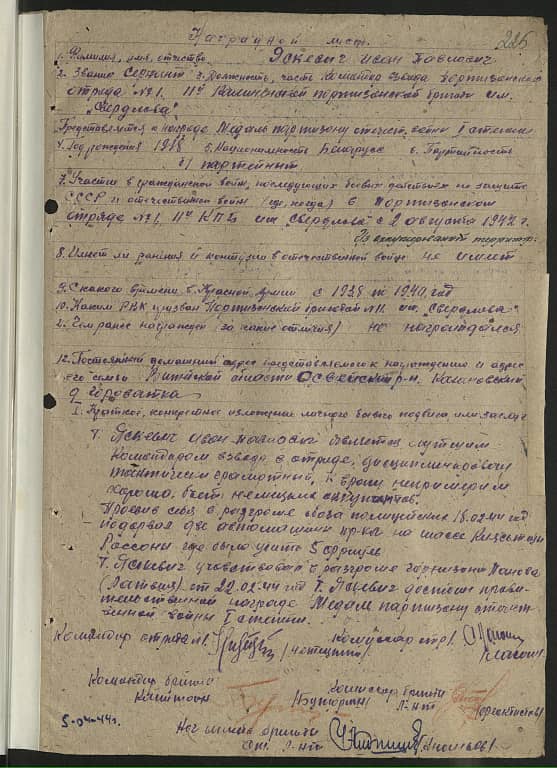 226
Наградной лист.
1. Фамилия, имя, отчество Яскевич Иван Павлович
2. Звание Сержант 3. Должность, часть Командир взвода партизанского
отряда №1. 11й Калининской партизанской бригады им.
"Свердлова"
Представляется к награде Медаль партизану отечест. войны I степени
4. Год рождения 1918 5. Национальность Беларусс 6. Партийность
б/партейный
7. Участие в гражданской войне, последующих боевых действиях по защите
СССР и отечественной войне (где, когда) в партизанском
отряде №1, 11й КПБ им. Свердлова с 2 августа 1942 г.
8. Имеет ли ранения и контузии в отечественной войне не имеет
9. С какого времени в Красной Армии с 1938 по 1940 год
10. Каким РВК призван Партизанской бригадой №11 им. Свердлова
Чем ранее награжден (за какие отличия) не награждался
12. Постоянный домашний адрес представляемого к награждению и адрес
его семьи области Освейский р-н,
д. Горбатка
I. Краткое, конкретное изложение личного боевого подвига или заслуг
Т. Яскевич Иван является лутшим
командиром взвода в отряде, дисциплинирован
тактически грамотный, к врагу непримерим
хорошо бьет немецких оккупантов.
Проявил себя в разгроме обоза полицейских 18.02.44 год
подорвал две автомашины пр-ка на шоссе
Россоны где было убито 5 фрицев
Т. Яскевич учавствовал в разгроме гарнизона
(Латвия) от 22.02.44 год Т. Яскевич достоин прави-
тельственной награде Медаль партизану отечест-
венной войны I степени.
Командир отряда №1. Комиссар отр.
Командир бригады Комиссар бригады
Капитан Л-нт
5-04-44г.
Нач штаба бригады
ст. Л-нт